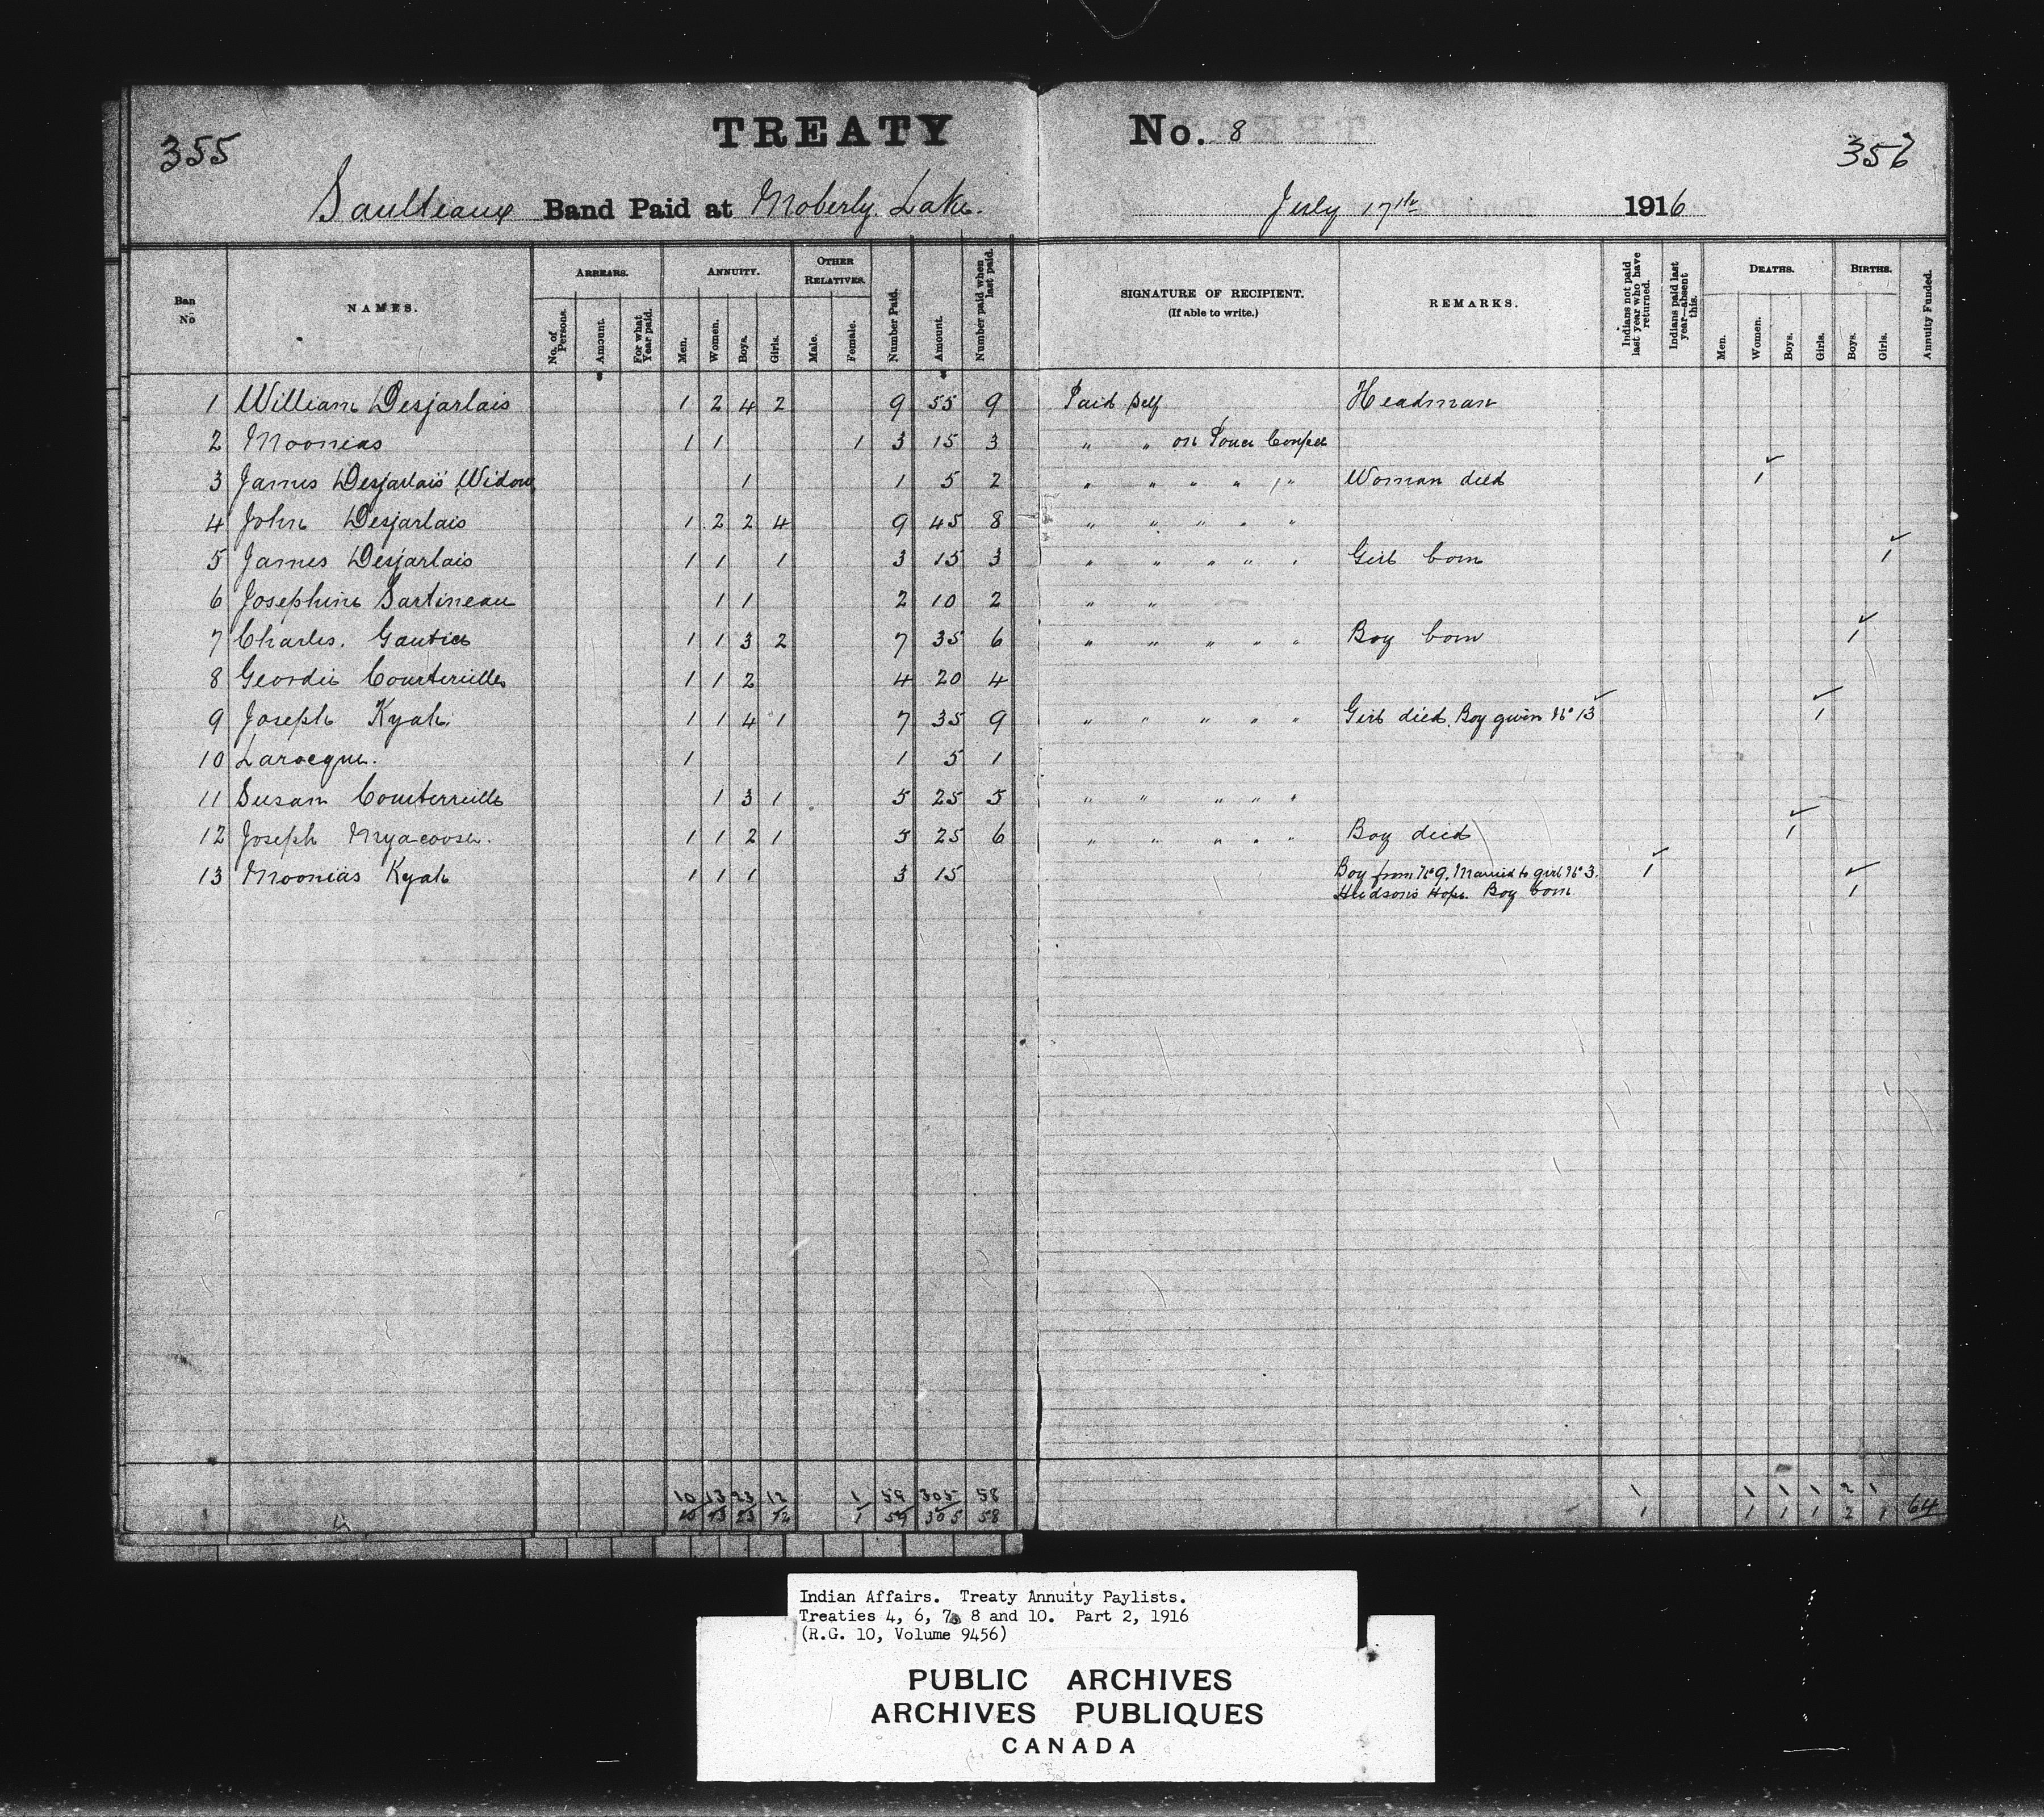 355
TREATY No. 8
356
Saulteaux Band Paid at Moberly Lake. July 17th 1916
Ban No
NAMES.
ARREARS.
No. of Persons.
Amount.
For what Year paid.
ANNUITY.
Men.
Women.
Boys.
Girls.
OTHER RELATIVES.
Male.
Female.
Number Paid.
Amount.
Number paid when last paid.
SIGNATURE OF RECIPIENT.
(If able to write.)
REMARKS.
Indians not paid last year who have returned.
Indians paid last year—absent this.
DEATHS.
Men.
Women.
Boys.
Girls.
BIRTHS.
Boys.
Girls.
Annuity Funded.
1 William Desjarlais 1 2 4 2 9 55 9 Paid Self Headman
2 Moonias 1 1 1 3 15 3 " " on
3 James Desjarlais' Widow 1 1 5 2 " " " " 1 " Woman died 1
4 John Desjarlais 1 2 2 4 9 45 8 " " " " "
5 James Desjarlais 1 1 1 3 15 3 " " " " " Girl born 1
6 Josephine Sartineau 1 1 2 10 2 " "
7 Charles. Gautier 1 1 3 2 7 35 6 " " " " " Boy born 1
8 Geordie Courterielle 1 1 2 4 20 4
9 Joseph Kyah. 1 1 4 1 7 35 9 " " " " " Girl died. Boy given No 13 1
10 Larocque. 1 1 5 1
11 Susan Courterielle 1 3 1 5 25 5 " " " " "
12 Joseph Myacoosh. 1 1 2 1 5 25 6 " " " " " Boy died 1
13 Moonias Kyah 1 1 1 3 15 Boy from No 9. Married to girl No 3. 1
Hudson's Hope. Boy born 1
10 13 23 12 1 59 305 58 1 1 1 1 2 1
10 13 23 12 1 59 305 58 1 1 1 1 2 1 64
Indian Affairs. Treaty Annuity Paylists.
Treaties 4, 6, 7, 8 and 10. Part 2, 1916
(R.G. 10, Volume 9456)
PUBLIC ARCHIVES
ARCHIVES PUBLIQUES
CANADA